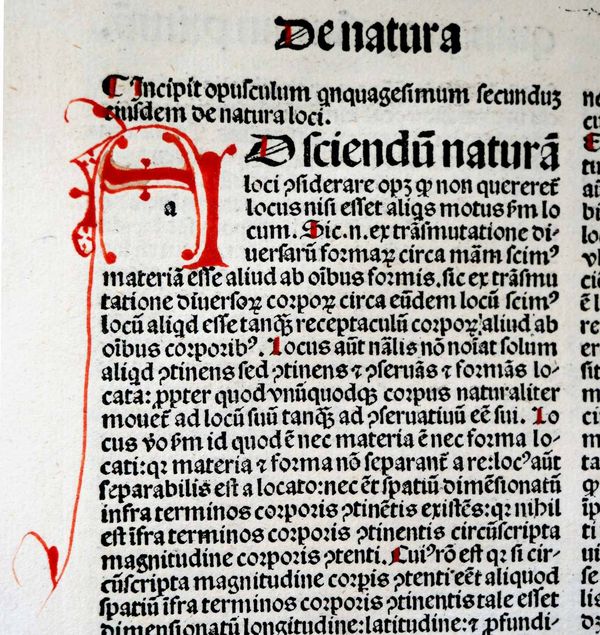 De natura
¶ Incipit opusculum qnquagesimum secunduʒ
eiusdem de natura loci.
A
a
D sciendū naturā
loci ꝯsiderare opꝫ ꝙ non quereret̄
locus nisi esset aliqs motus ẜm lo
cum. Sic.n.ex trāsmutatione di-
uersarū formaꝝ circa mām scimꝰ
materiā esse aliud ab oībus formis, sic ex trāsmu
tatione diuersoꝝ corpoꝝ circa eūdem locū scimꝰ
locū aliqd esse tanqꝫ receptaculū corpoꝝ aliud ab
oībus corporibꝰ. Locus aūt nālis nō noīat solum
aliqd ꝯtinens sed ꝯtinens ⁊ ꝯseruās ⁊ formās lo-
cata: ꝓpter quod vnūquodqꝫ corpus naturaliter
mouet̄ ad locū suū tanqꝫ ad ꝯseruatiuū eē sui. Lo
cus v̊o ẜm id quod ē nec materia ē nec forma lo-
cati: qꝛ materia ⁊ forma nō separant̄ a re: locꝰ aūt
separabilis est a locato: nec ēt spatiū dimēsionatū
infra terminos corporis ꝯtinētis existēs: qꝛ nihil
est īfra terminos corporis ꝯtinentis circūscripta
magnitudine corporis ꝯtenti. Cuiꝰ rō est qꝛ si cir-
cūscripta magnitudine corpis ꝯtenti eēt aliquod
spatiū īfra terminos corporis ꝯtinentis tale esset
dimensionatū longitudine: latitudine: ⁊ ꝓfundi-